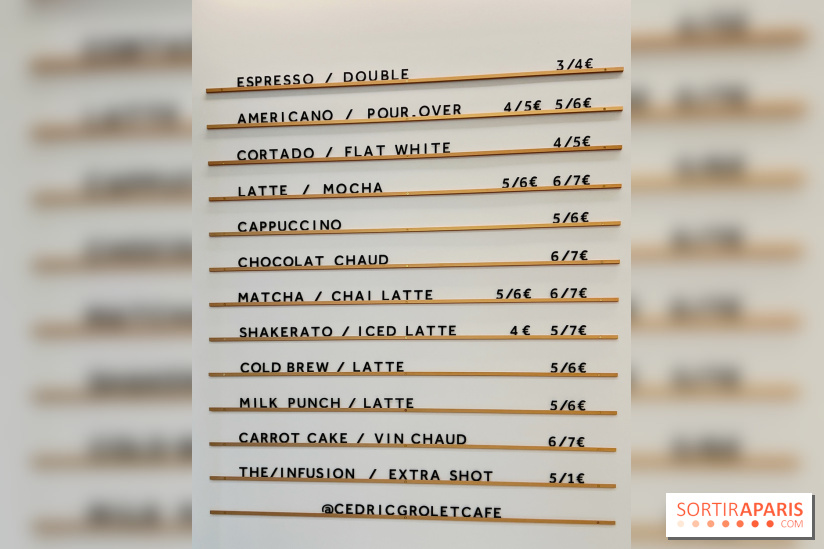 ESPRESSO / DOUBLE 3/4€
AMERICANO / POUR.OVER 4/5€ 5/6€
CORTADO / FLAT WHITE 4/5€
LATTE / MOCHA 5/6€ 6/7€
CAPPUCCINO 5/6€
CHOCOLAT CHAUD 6/7€
MATCHA / CHAI LATTE 5/6€ 6/7€
SHAKERATO / ICED LATTE 4€ 5/7€
COLD BREW / LATTE 5/6€
MILK PUNCH / LATTE 5/6€
CARROT CAKE / VIN CHAUD 6/7€
THE/INFUSION / EXTRA SHOT 5/1€
@CEDRICGROLETCAFE
SORTIRAPARIS
.COM